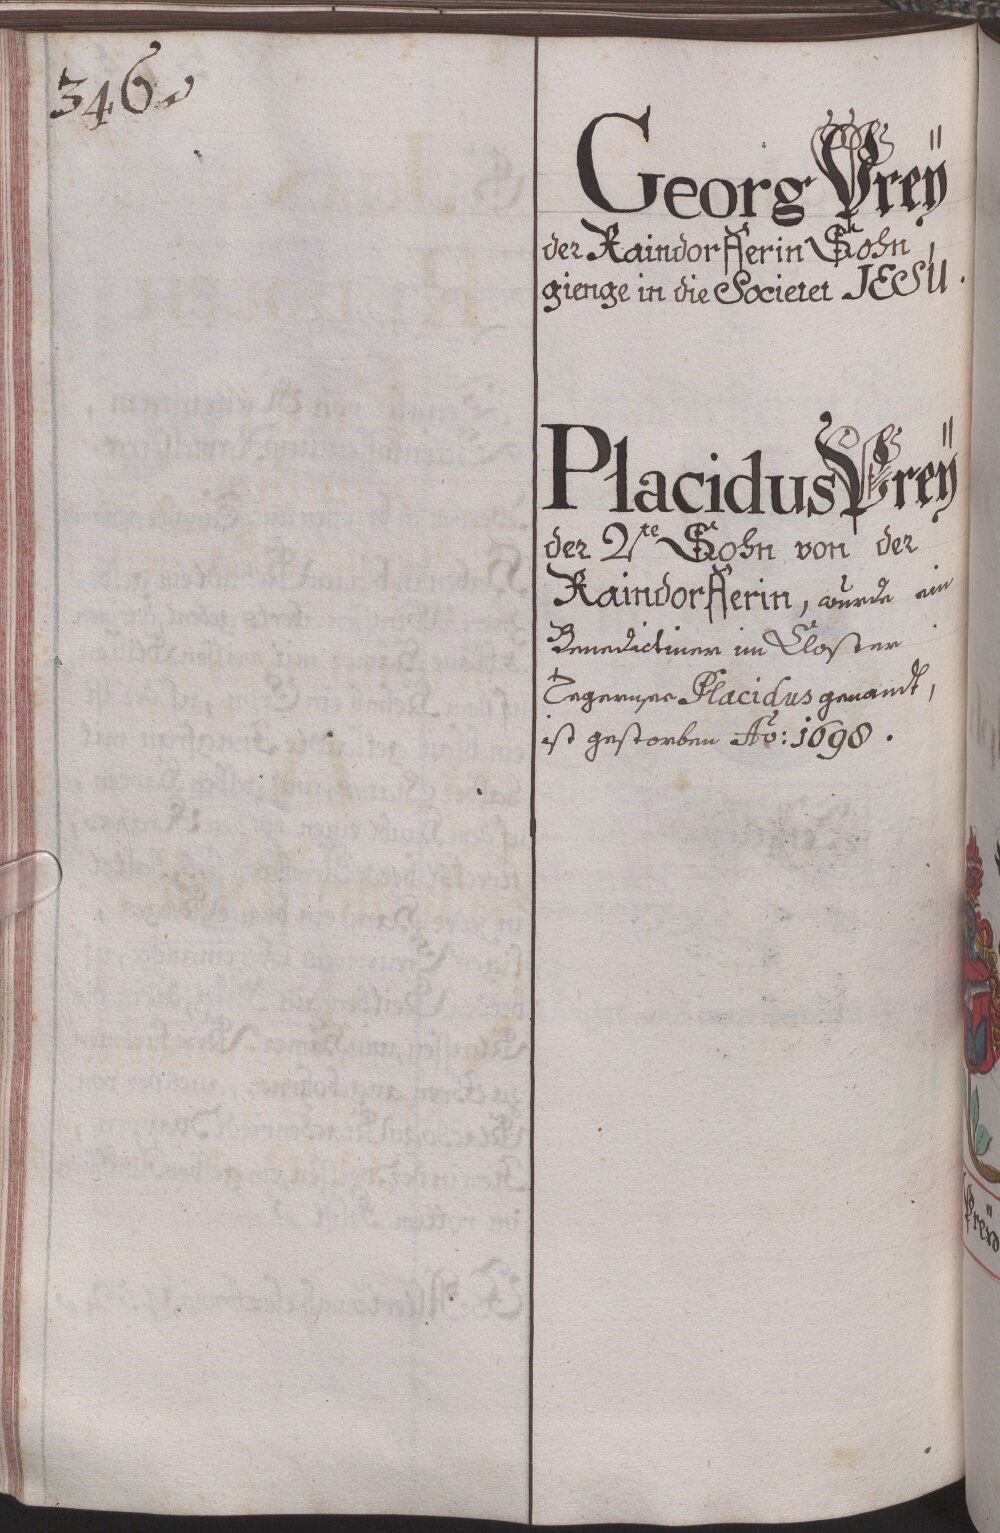 346.
Georg Preÿ
der Raindorfferin Sohn,
gienge in die Societet JESU.
Placidus Preÿ
der 2te Sohn von der
Raindorfferin, wurde ein
Benedictiner im Closter
Tegernsee Placidus genandt,
ist gestorben Ao: 1698.